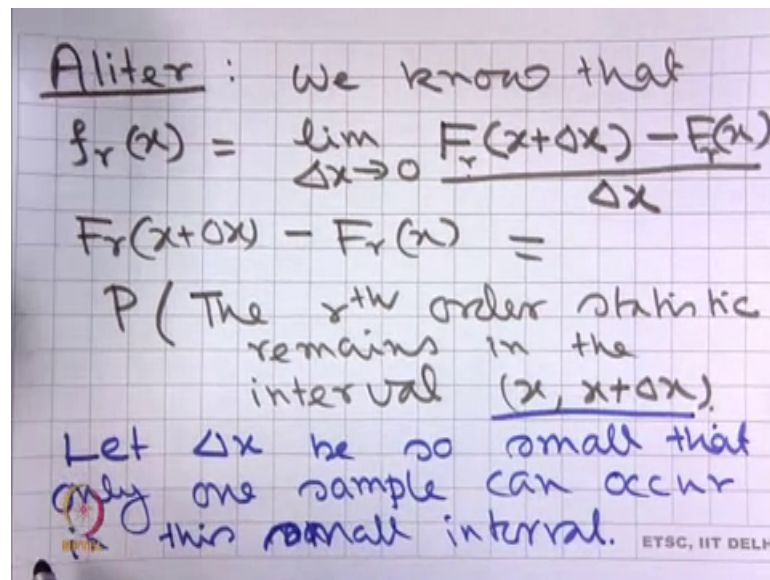 Aliter : We know that
fᵣ(x) = lim Δx→0 (Fᵣ(x+Δx) − Fᵣ(x)) / Δx
Fᵣ(x+Δx) − Fᵣ(x) =
P ( The rᵗʰ order statistic
remains in the
interval (x, x+Δx).
Let Δx be so small that
only one sample can occur
in this small interval.
ETSC, IIT DELH